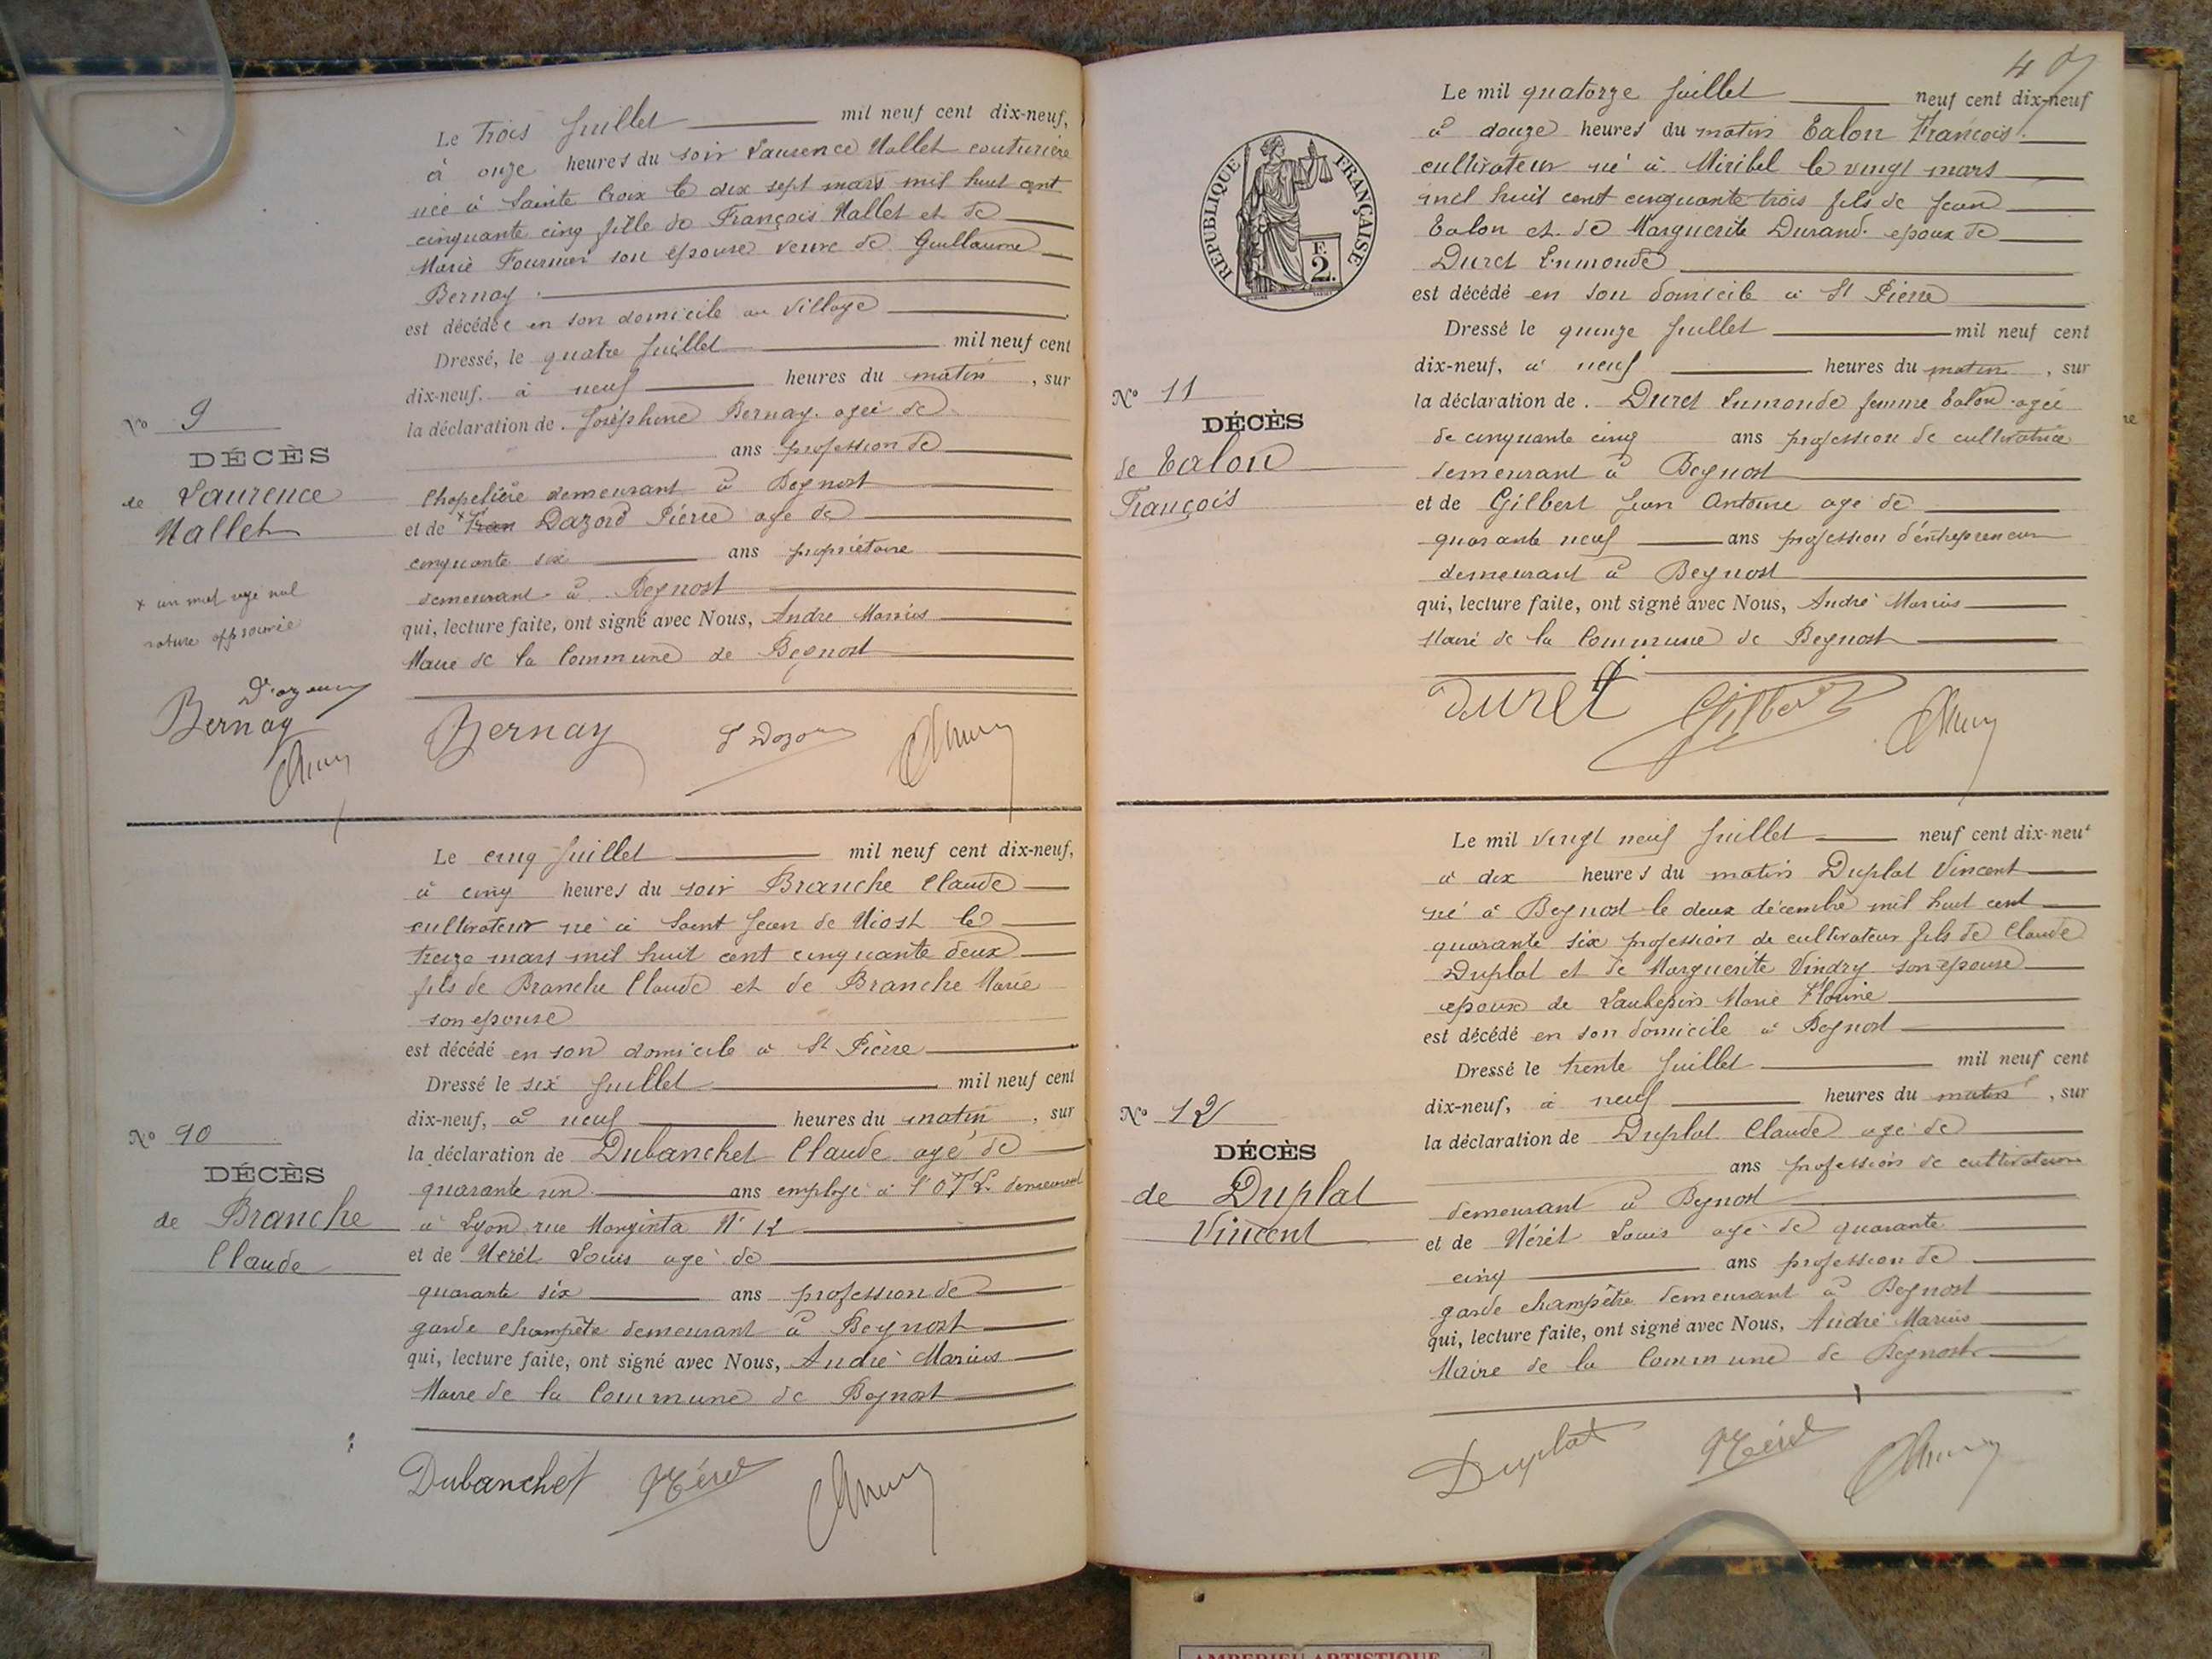 Le trois Juillet mil neuf cent dix-neuf,
à onze heures du soir Laurence Nallet couturière
née à Sainte Croix le dix sept mars mil huit cent
cinquante cinq fille de François Nallet et de
Marie Fournier son epouse veuve de Guillaume
Bernay
est décédée en son domicile au village
Dressé, le quatre Juillet mil neuf cent
dix-neuf, à neuf heures du matin, sur
la déclaration de Joséphine Bernay. agée de
ans profession de
Chapelière demeurant à Beynost
et de Dazord Pierre age de
cinquante six ans propriétaire
demeurant à Beynost
qui, lecture faite, ont signé avec Nous, André Marius
Maire de la Commune de Beynost
No 9
DÉCÈS
de Laurence
Nallet
x un mot rayé nul
rature approuvée
Bernay
Bernay
Le cinq Juillet mil neuf cent dix-neuf,
à cinq heures du soir Branche Claude
cultivateur né à Saint Jean de Niost le
treize mars mil huit cent cinquante deux
fils de Branche Claude et de Branche Marie
son epouse
est décédé en son domicile à St Pierre
Dressé le six Juillet mil neuf cent
dix-neuf, à neuf heures du matin, sur
la déclaration de Dubanchet Claude agé de
quarante un ans employé à l'OTL demeurant
à Lyon rue N° 12
et de Néret Louis age de
quarante six ans profession de
garde champête demeurant à Beynost
qui, lecture faite, ont signé avec Nous, André Marius
Maire de la Commune de Beynost
No 10
DÉCÈS
de Branche
Claude
Dubanchet Néret
4
Le mil quatorze Juillet neuf cent dix-neuf
à douze heures du matin Talon François
cultivateur né à Miribel le vingt mars
mil huit cent cinquante trois fils de Jean
Talon et de Marguerite Durand epoux de
Duret Enmonde
est décédé en son domicile à St Pierre
Dressé le quinze Juillet mil neuf cent
dix-neuf, à neuf heures du matin, sur
la déclaration de Duret Enmonde femme Talon agée
de cinquante cinq ans profession de cultivatrice
demeurant à Beynost
et de Gilbert Jean Antoine age de
quarante neuf ans profession d'entrepreneur
demeurant à Beynost
qui, lecture faite, ont signé avec Nous, André Marius
Maire de la Commune de Beynost
REPUBLIQUE FRANÇAISE
F.
2.
No 11
DÉCÈS
de Talon
François
Duret Gilbert
Le mil vingt neuf Juillet neuf cent dix-neuf
à dix heures du matin Duplat Vincent
né à Beynost le deux décembre mil huit cent
quarante six profession de cultivateur fils de Claude
Duplat et de Marguerite Vindry son epouse
epoux de Laubepin Marie Florine
est décédé en son domicile à Beynost
Dressé le trente Juillet mil neuf cent
dix-neuf, à neuf heures du matin, sur
la déclaration de Duplat Claude age de
ans profession de cultivateur
demeurant à Beynost
et de Néret Louis age de quarante
cinq ans profession de
garde champêtre demeurant à Beynost
qui, lecture faite, ont signé avec Nous, André Marius
Maire de la Commune de Beynost
No 12
DÉCÈS
de Duplat
Vincent
Duplat Néret
AMBERIEU ARTISTIQUE